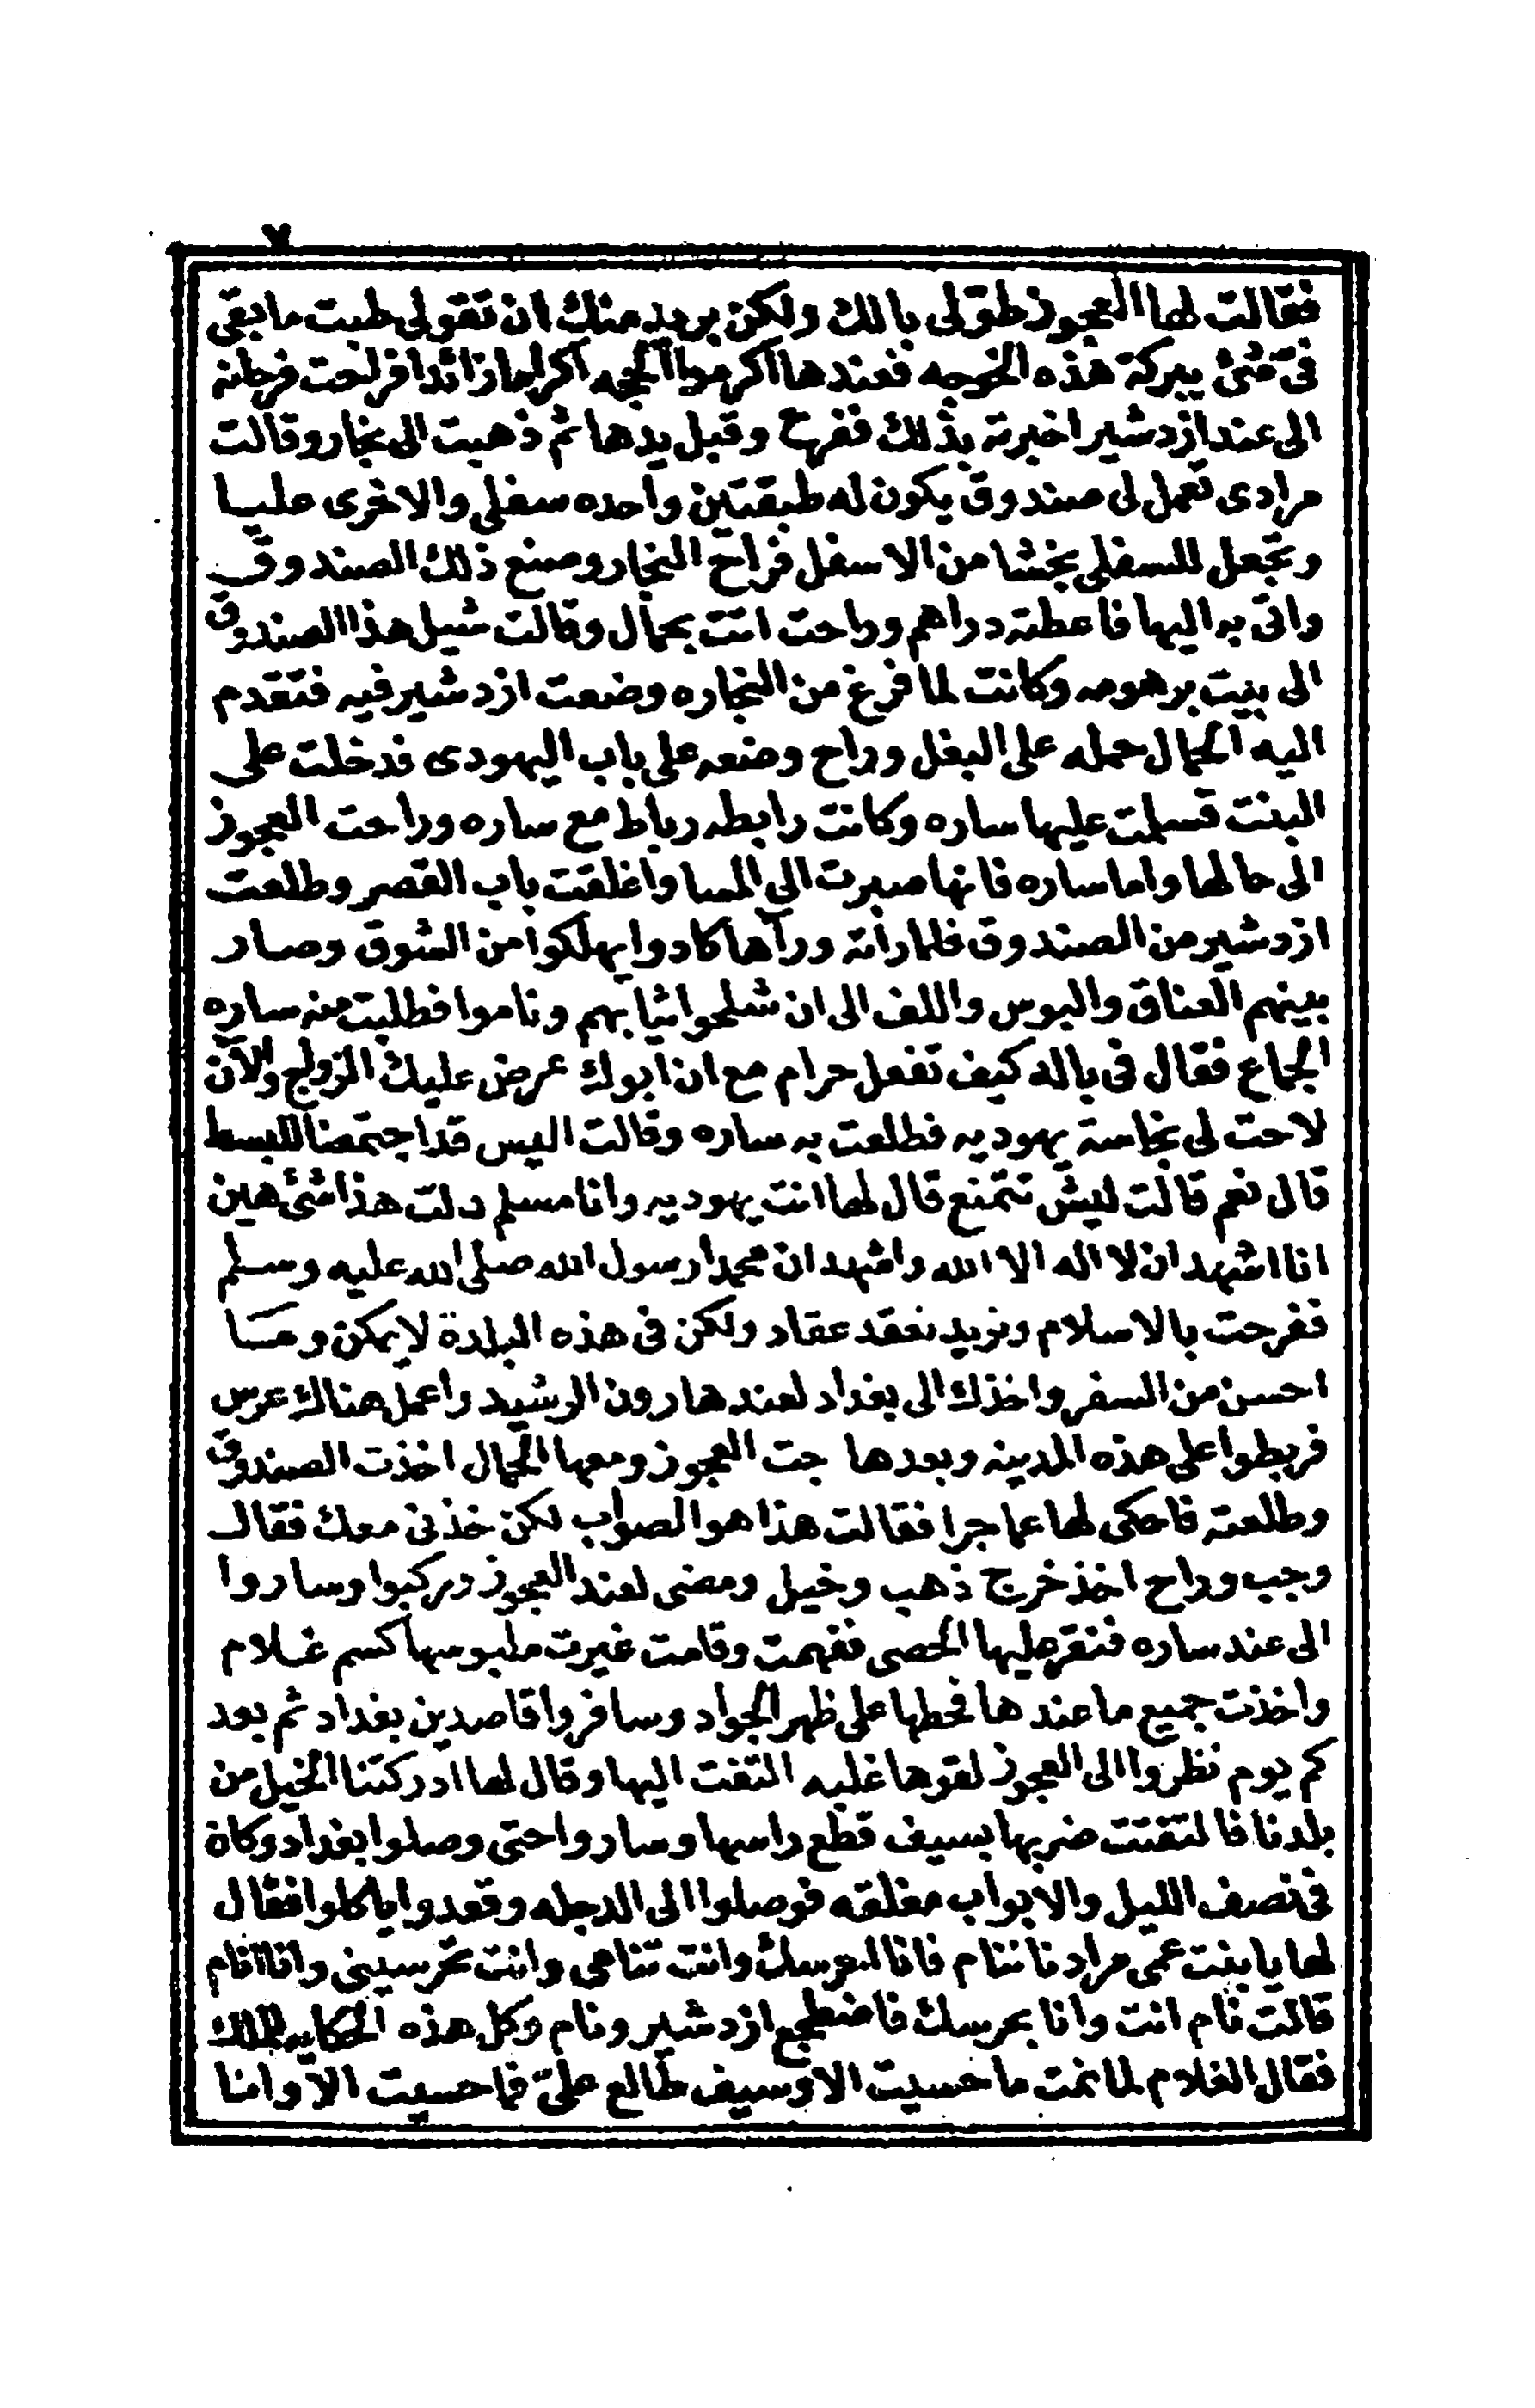 ٧
فقالت لها العجوز طولى بالك ولكن بريد منك ان تقولى طبت ما بقى
فى شئ ببركة هذه الخوجه فعندها اكرموا الخجه اكراما زائدا فراحت فرحانه
الى عند ازدشير اخبرته بذلك ففرح وقبل يدها ثم ذهبت الى نجار وقالت
مرادى تعمل لى صندوق يكون له طبقتين واحده سفلى والاخرى عليا
وتجعل للسفلى بخشا من الاسفل فراح النجار وصنع ذلك الصندوق
واتى به اليها فاعطته دراهم وراحت اتت بجمال وقالت شيل هذا الصندوق
الى بيت برهومه وكانت لما فرغ من النجاره وضعت ازدشير فيه فتقدم
اليه الجمال حمله على البغل وراح وضعه على باب اليهودى فدخلت على
البنت فسلمت عليها ساره وكانت رابطه رباط مع ساره وراحت العجوز
الى حالها واما ساره فانها صبرت الى المسا واغلقت باب القصر وطلعت
ازدشير من الصندوق فلما رأته ورآها كادوا يهلكوا من الشوق وصار
بينهم العناق والبوس واللف الى ان شلحوا ثيابهم وناموا فطلبت منه ساره
الجماع فقال فى باله كيف تفعل حرام مع ان ابوك عرض عليك الزواج والآن
لاحت لى نجاسة يهوديه فطلعت به ساره وقالت اليس قد اجتمعنا للبسط
قال نعم قالت ليش تتمنع قال لها انت يهوديه وانا مسلم دلت هذا شئ هين
انا اشهد ان لا اله الا الله واشهد ان محمدا رسول الله صلى الله عليه وسلم
ففرحت بالاسلام ونريد نعقد عقاد ولكن فى هذه البلدة لا يمكن وما
احسن من السفر واخذك الى بغداد لعند هارون الرشيد واعمل هناك عرس
فربطوا على هذه المدينه وبعدها جت العجوز ومعها الجمال اخذت الصندوق
وطلعته فاحكى لها عما جرا فقالت هذا هو الصواب لكن خذنى معك فقال
وجب وراح اخذ خرج ذهب وخيل ومضى لعند العجوز وركبوا وساروا
الى عند ساره فنقر عليها الحصى ففهمت وقامت غيرت ملبوسها كسم غلام
واخذت جميع ما عندها فحطها على ظهر الجواد وسافروا قاصدين بغداد ثم بعد
كم يوم نظروا الى العجوز لقوها غلبه التفت اليها وقال لها ادركتنا الخيل من
بلدنا فالتفتت ضربها بسيف قطع راسها وساروا حتى وصلوا بغداد وكان
فى نصف الليل والابواب مغلقه فوصلوا الى الدجله وقعدوا ياكلوا فقال
لها يا بنت عمى مرادنا ننام فانا احرسك وانت تنامى وانت تحرسينى وانا انام
قالت نام انت وانا بحرسك فاضطجع ازدشير ونام وكل هذه الحكايه للملك
فقال الغلام لما نمت ما حسيت الا وسيف طالع علىّ فما حسيت الا وانا